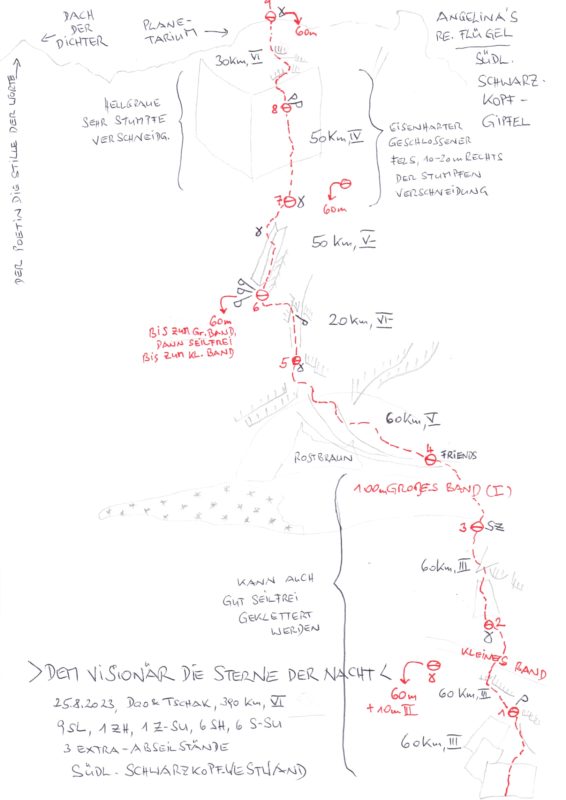 DACH
DER
DICHTER
PLANE-
TARIUM
9
60m
ANGELINA'S
RE. FLÜGEL
SÜDL.
SCHWARZ-
KOPF-
GIPFEL
30Km, VI
DER POETIN DIE STILLE DER WORTE
HELLGRAUE
SEHR STUMPFE
VERSCHNEIDG.
8
50Km, IV
EISENHARTER
GESCHLOSSENER
FELS, 10-20m RECHTS
DER STUMPFEN
VERSCHNEIDUNG
7
60m
50Km, V-
6
60m
BIS ZUM GR. BAND,
DANN SEILFREI
BIS ZUM KL. BAND
20Km, VI-
5
60Km, V
4
FRIENDS
ROSTBRAUN
100m GROßES BAND (I)
3
SZ
60Km, III
KANN AUCH
GUT SEILFREI
GEKLETTERT
WERDEN
2
KLEINES BAND
>DEM VISIONÄR DIE STERNE DER NACHT<
60m
+10m II
60Km, II
1
60Km, III
25.8.2023, DOO & TSCHAK, 390 Km, VI
9 SL, 1 ZH, 1 Z-SU, 6 SH, 6 S-SU
3 EXTRA-ABSEILSTÄNDE
SÜDL. SCHWARZKOPF-WESTWAND